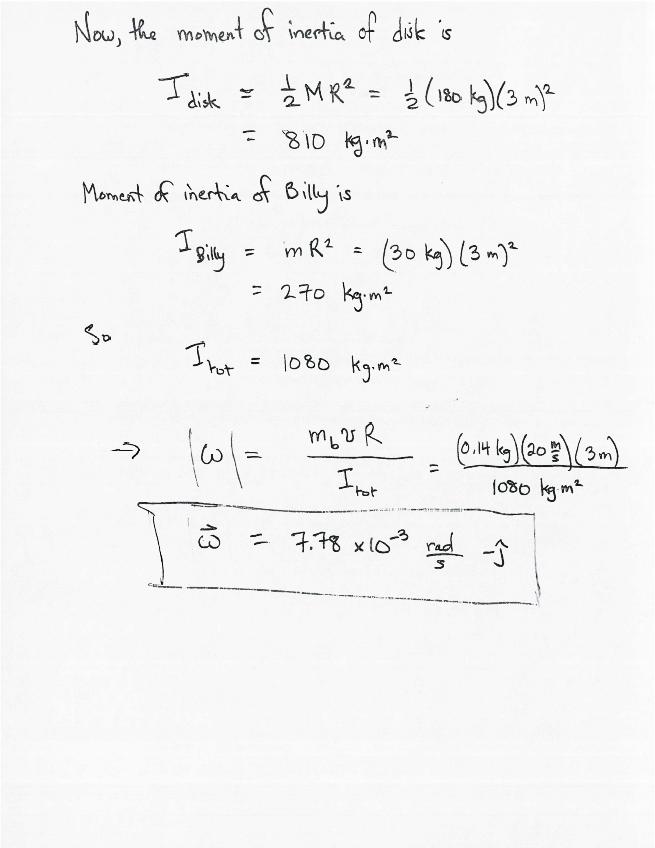 Now, the moment of inertia of disk is
I disk = 1/2 MR² = 1/2 (180 kg)(3 m)²
= 810 kg·m²
Moment of inertia of Billy is
I Billy = mR² = (30 kg)(3 m)²
= 270 kg·m²
So
I tot = 1080 kg·m²
→ |ω| = m_b v R / I_tot = (0.14 kg)(20 m/s)(3m) / 1080 kg·m²
ω⃗ = 7.78 x10⁻³ rad/s -ĵ